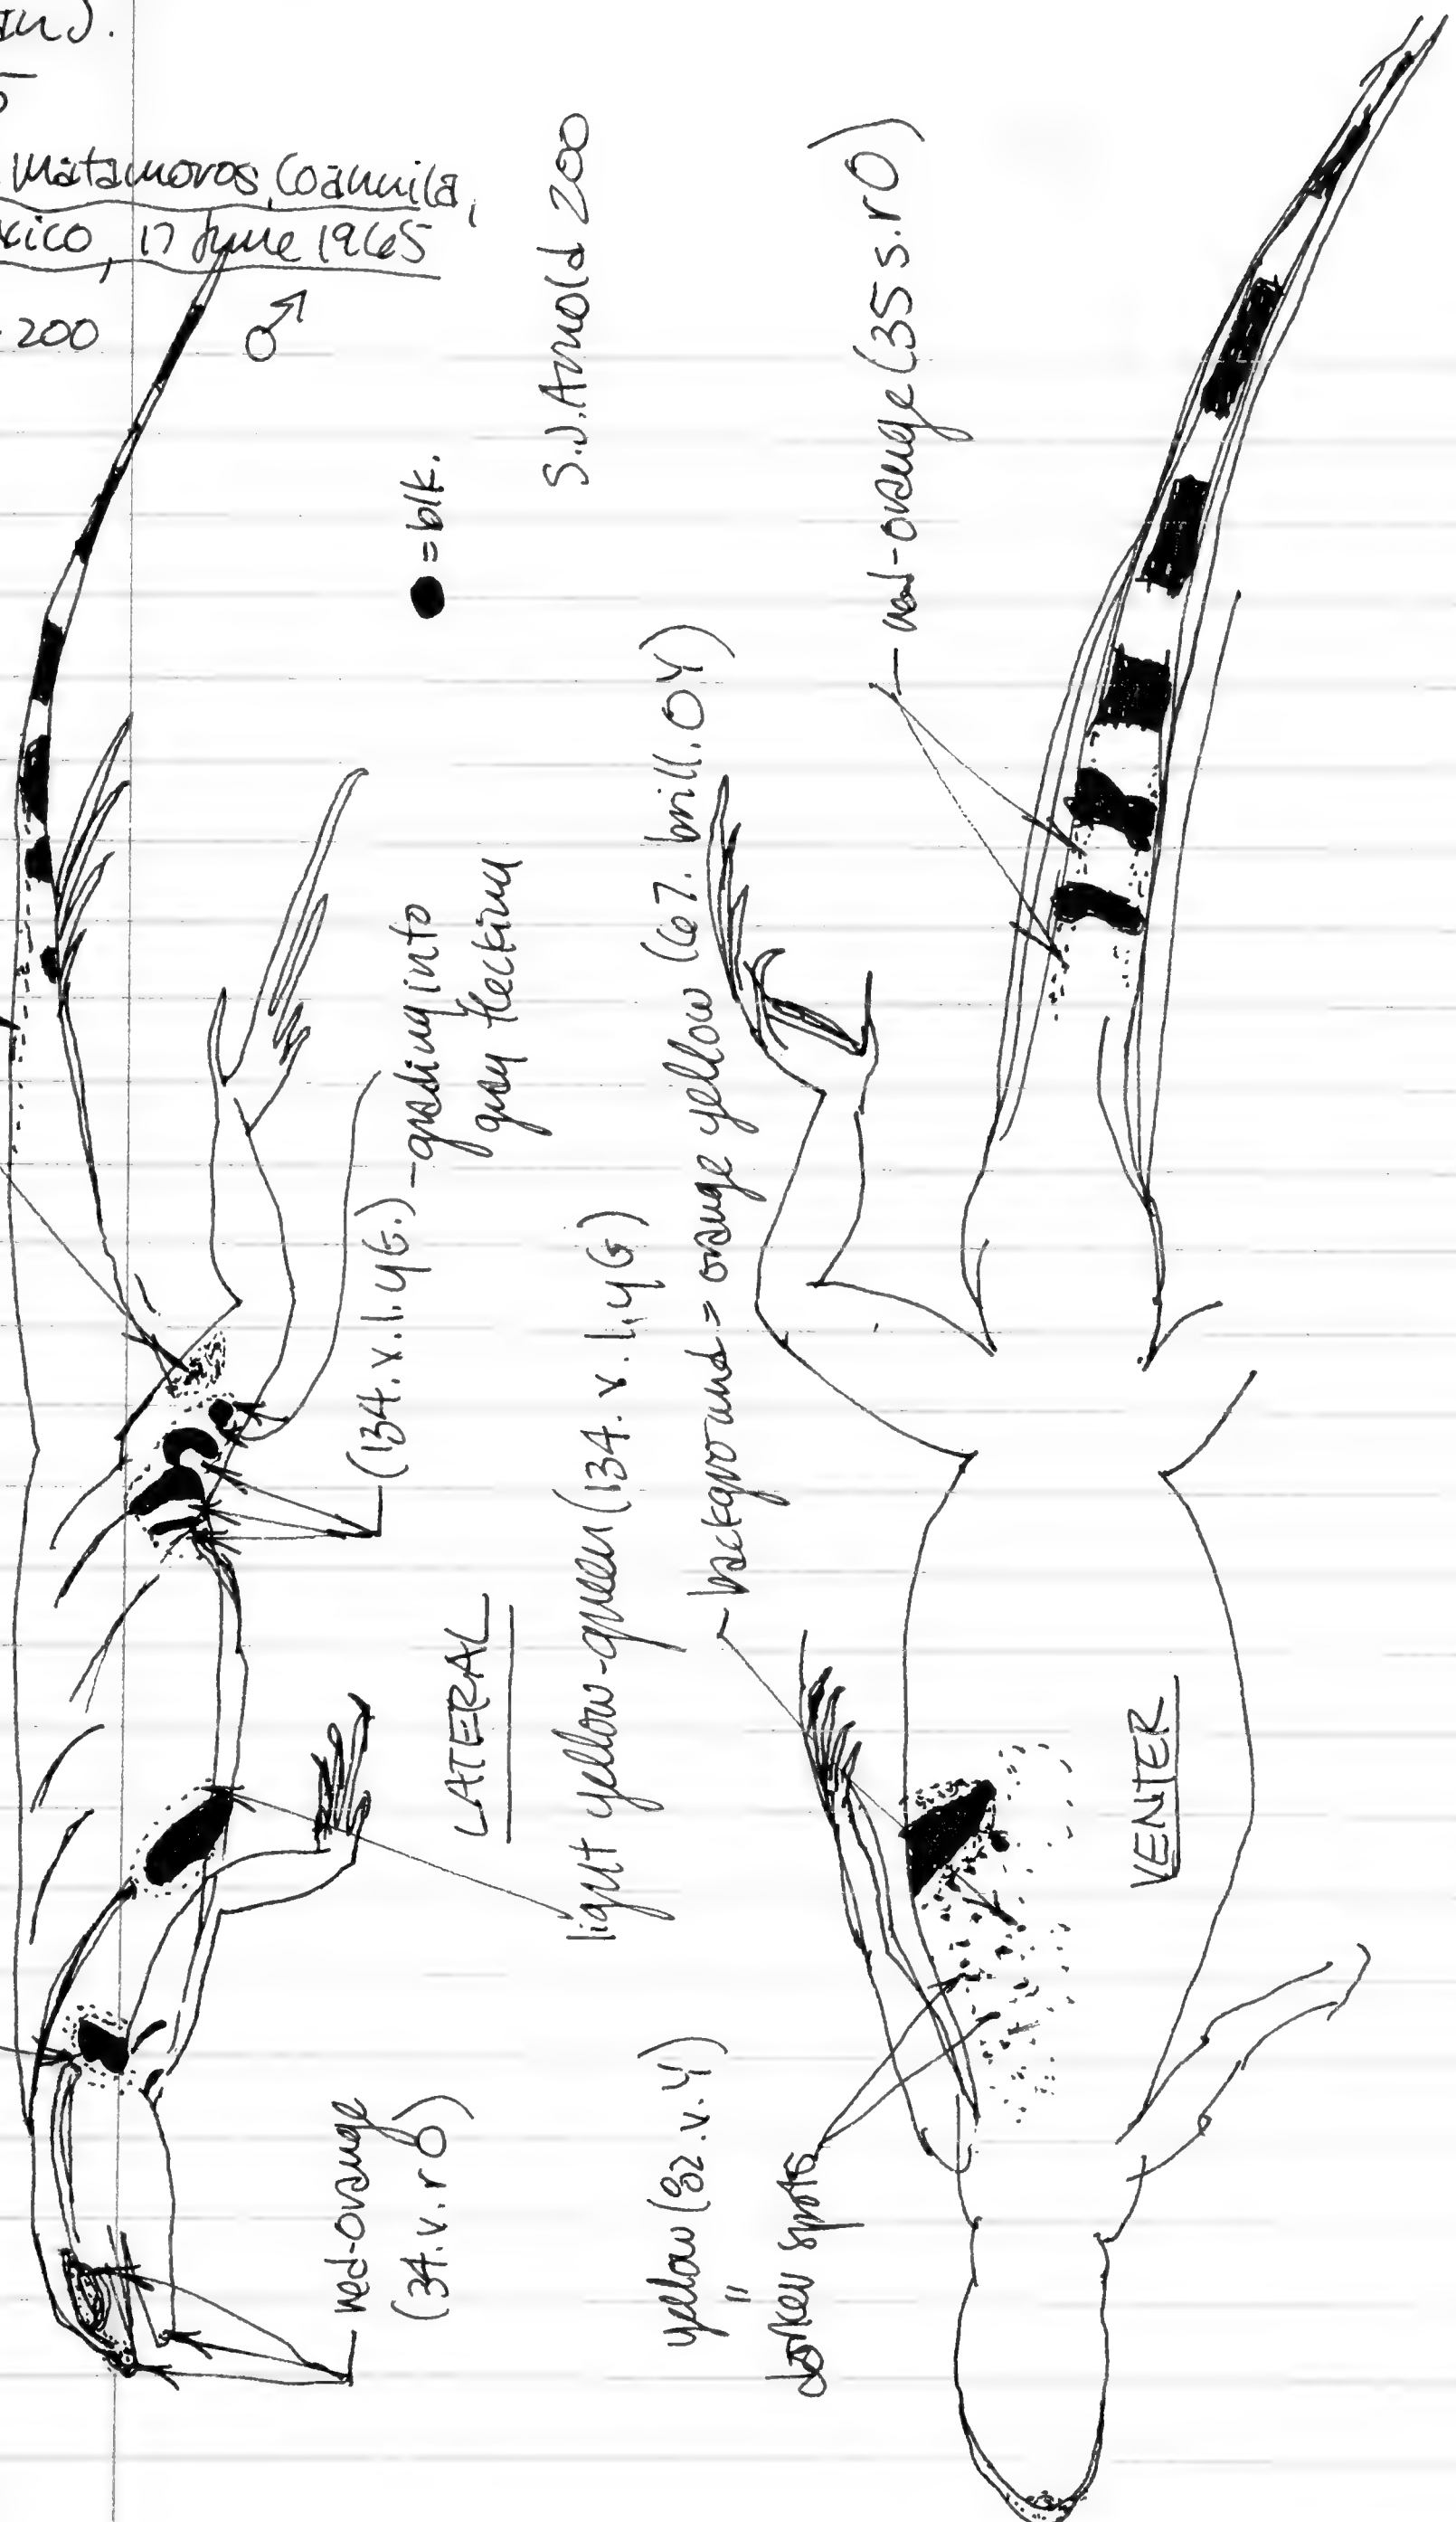 5
Matamoros, Coahuila,
xico, 17 June 1965
200 ♂
S.J. Arnold 200
● = blk.
red-orange (35 s.rO)
(134. v.l.yG.) - grading into
gray flecking
LATERAL
light yellow-green (134. v.l.yG)
background = orange yellow (67. brill. OY)
red-orange
(34. v. rO)
yellow (82. v. Y)
"
darker spots
VENTER